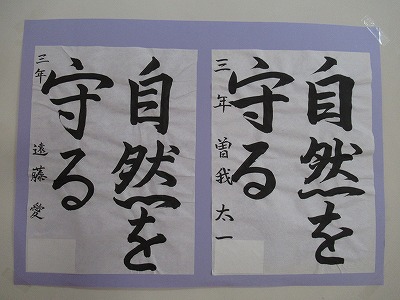 自然を
守る
三年 曽我太一
自然を
守る
三年 遠藤愛